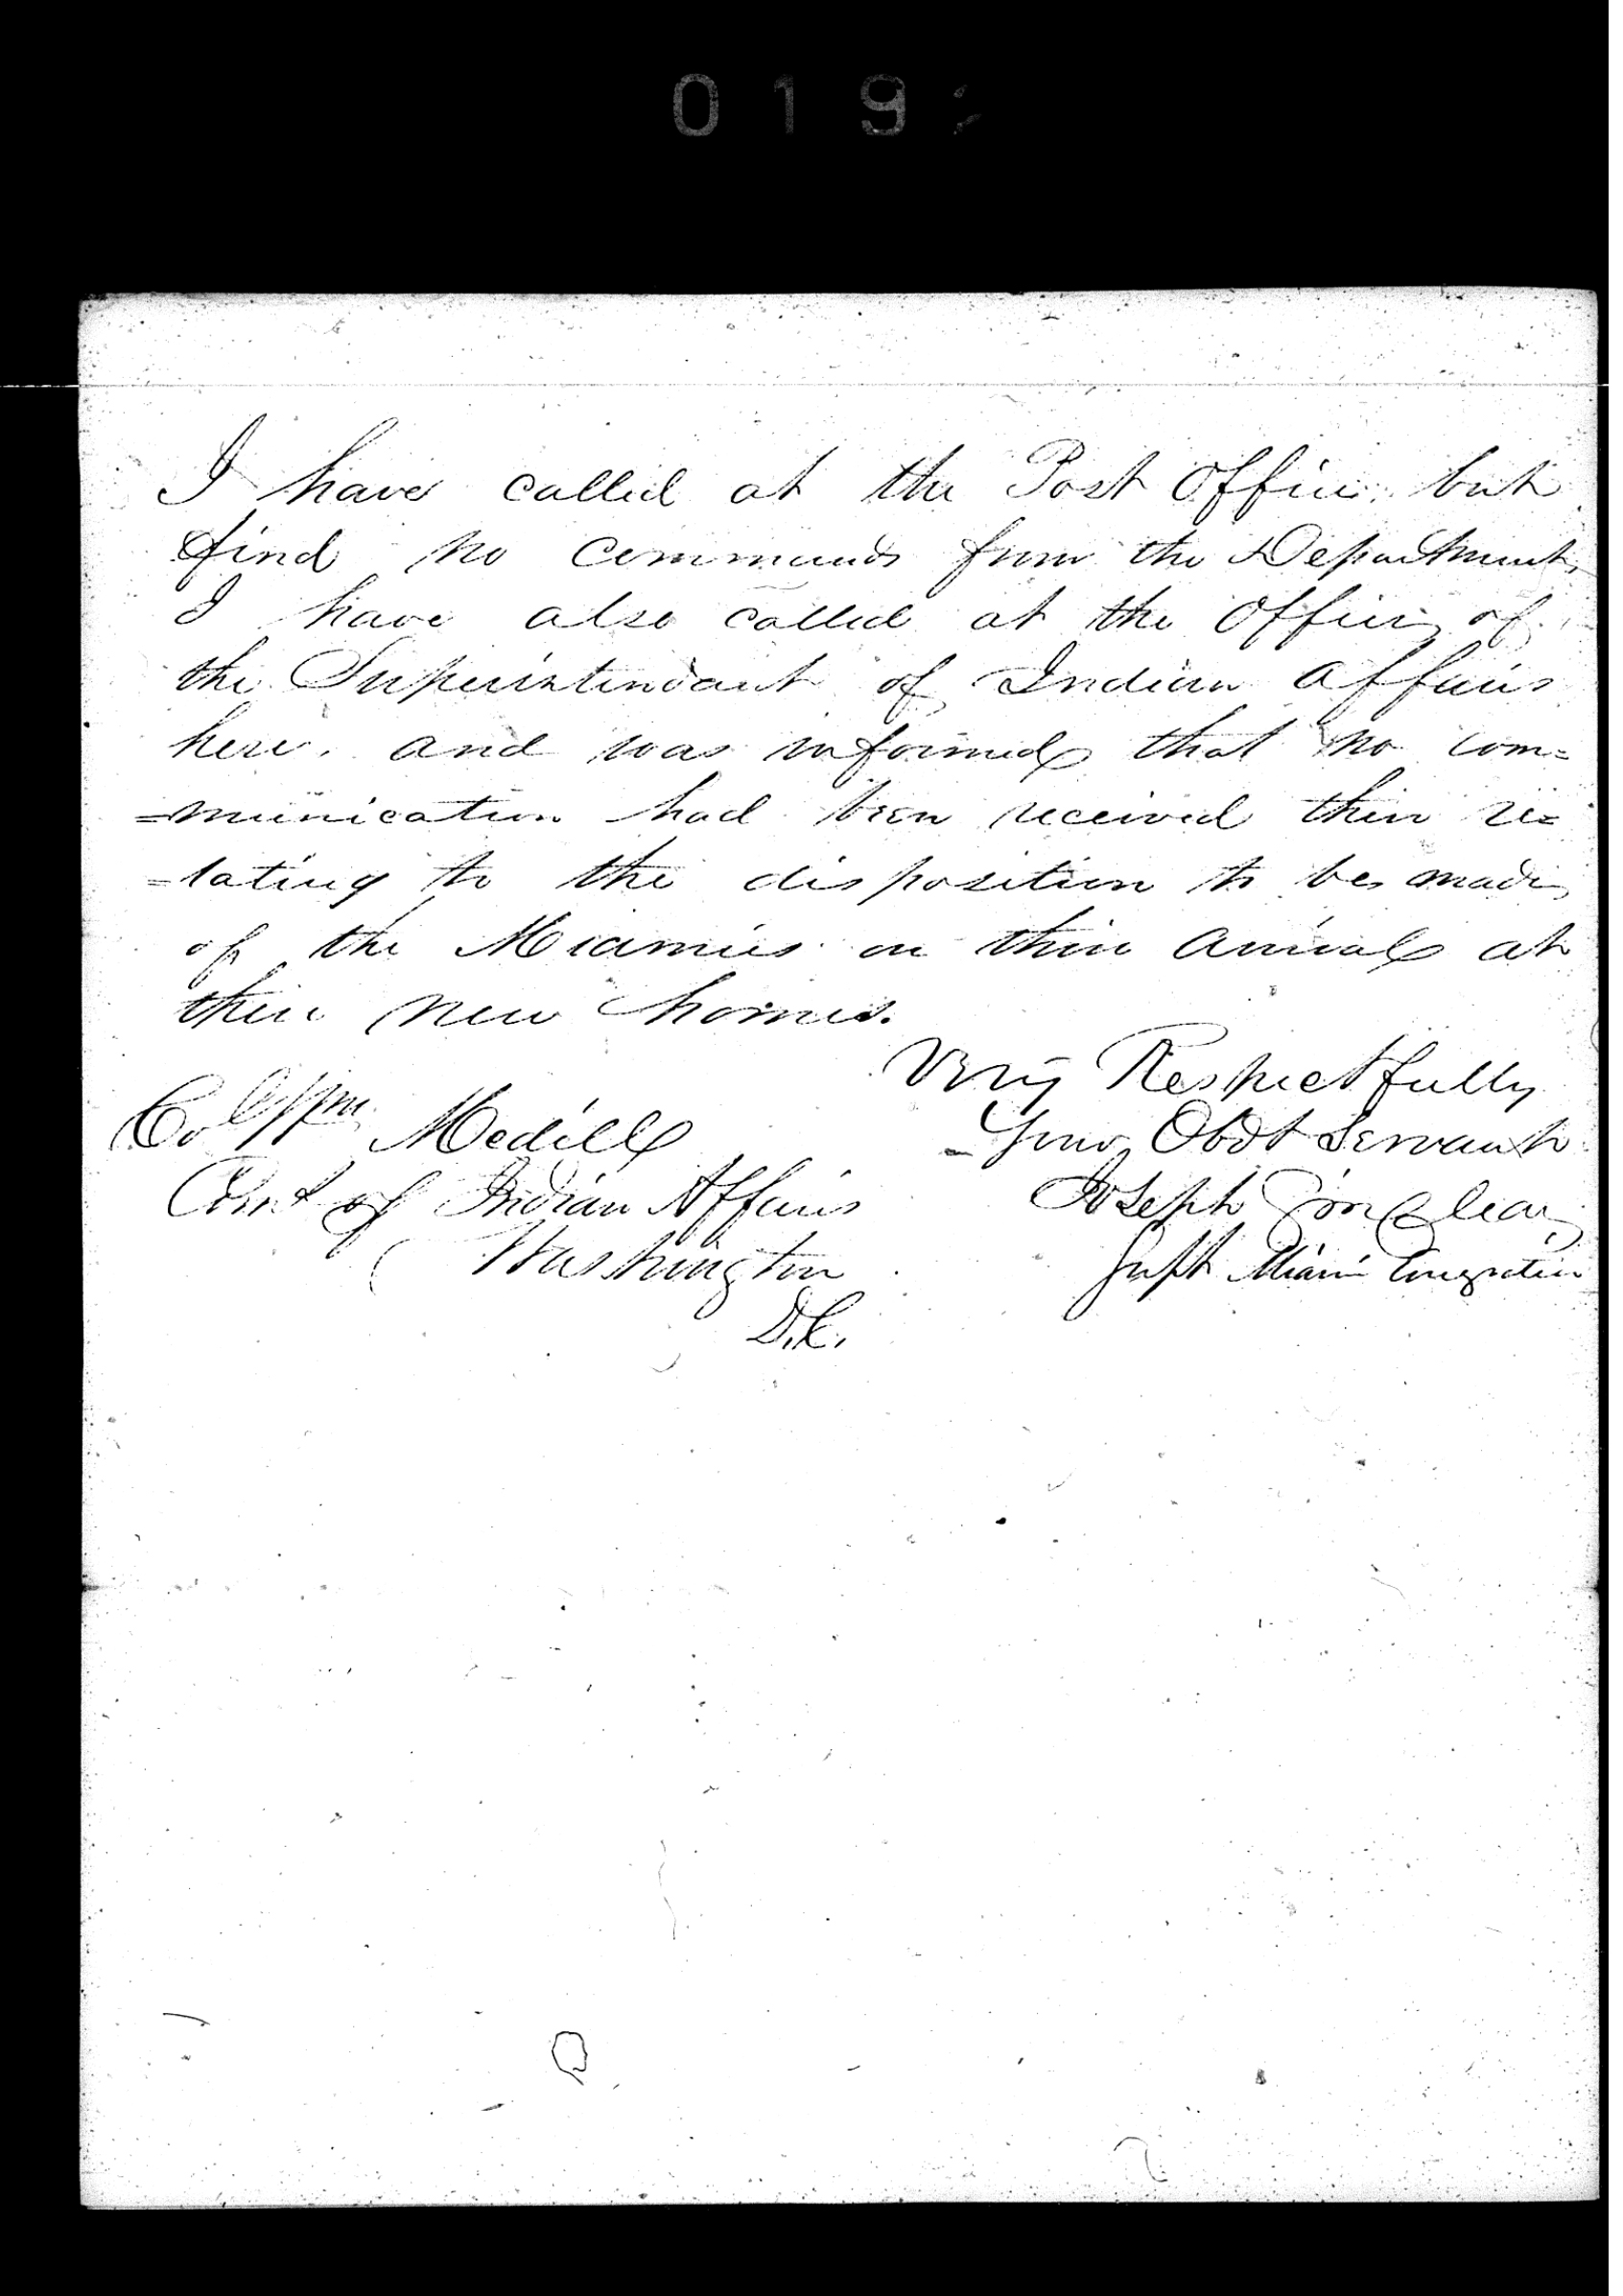 019
I have called at the Post Office but
find no commands from the Department,
I have also called at the Office of
the Superintendant of Indian Affairs
here. and was informed that no com=
=munication had been received then re=
=lating to the disposition to be made
of the Miamies on their arrival at
their new homes.
Very Respectfully
Your Obdt Servant
Col Wm Medill
Comr of Indian Affairs
Washington
D.C.
Joseph Sinclear
Supt Miami Emigration